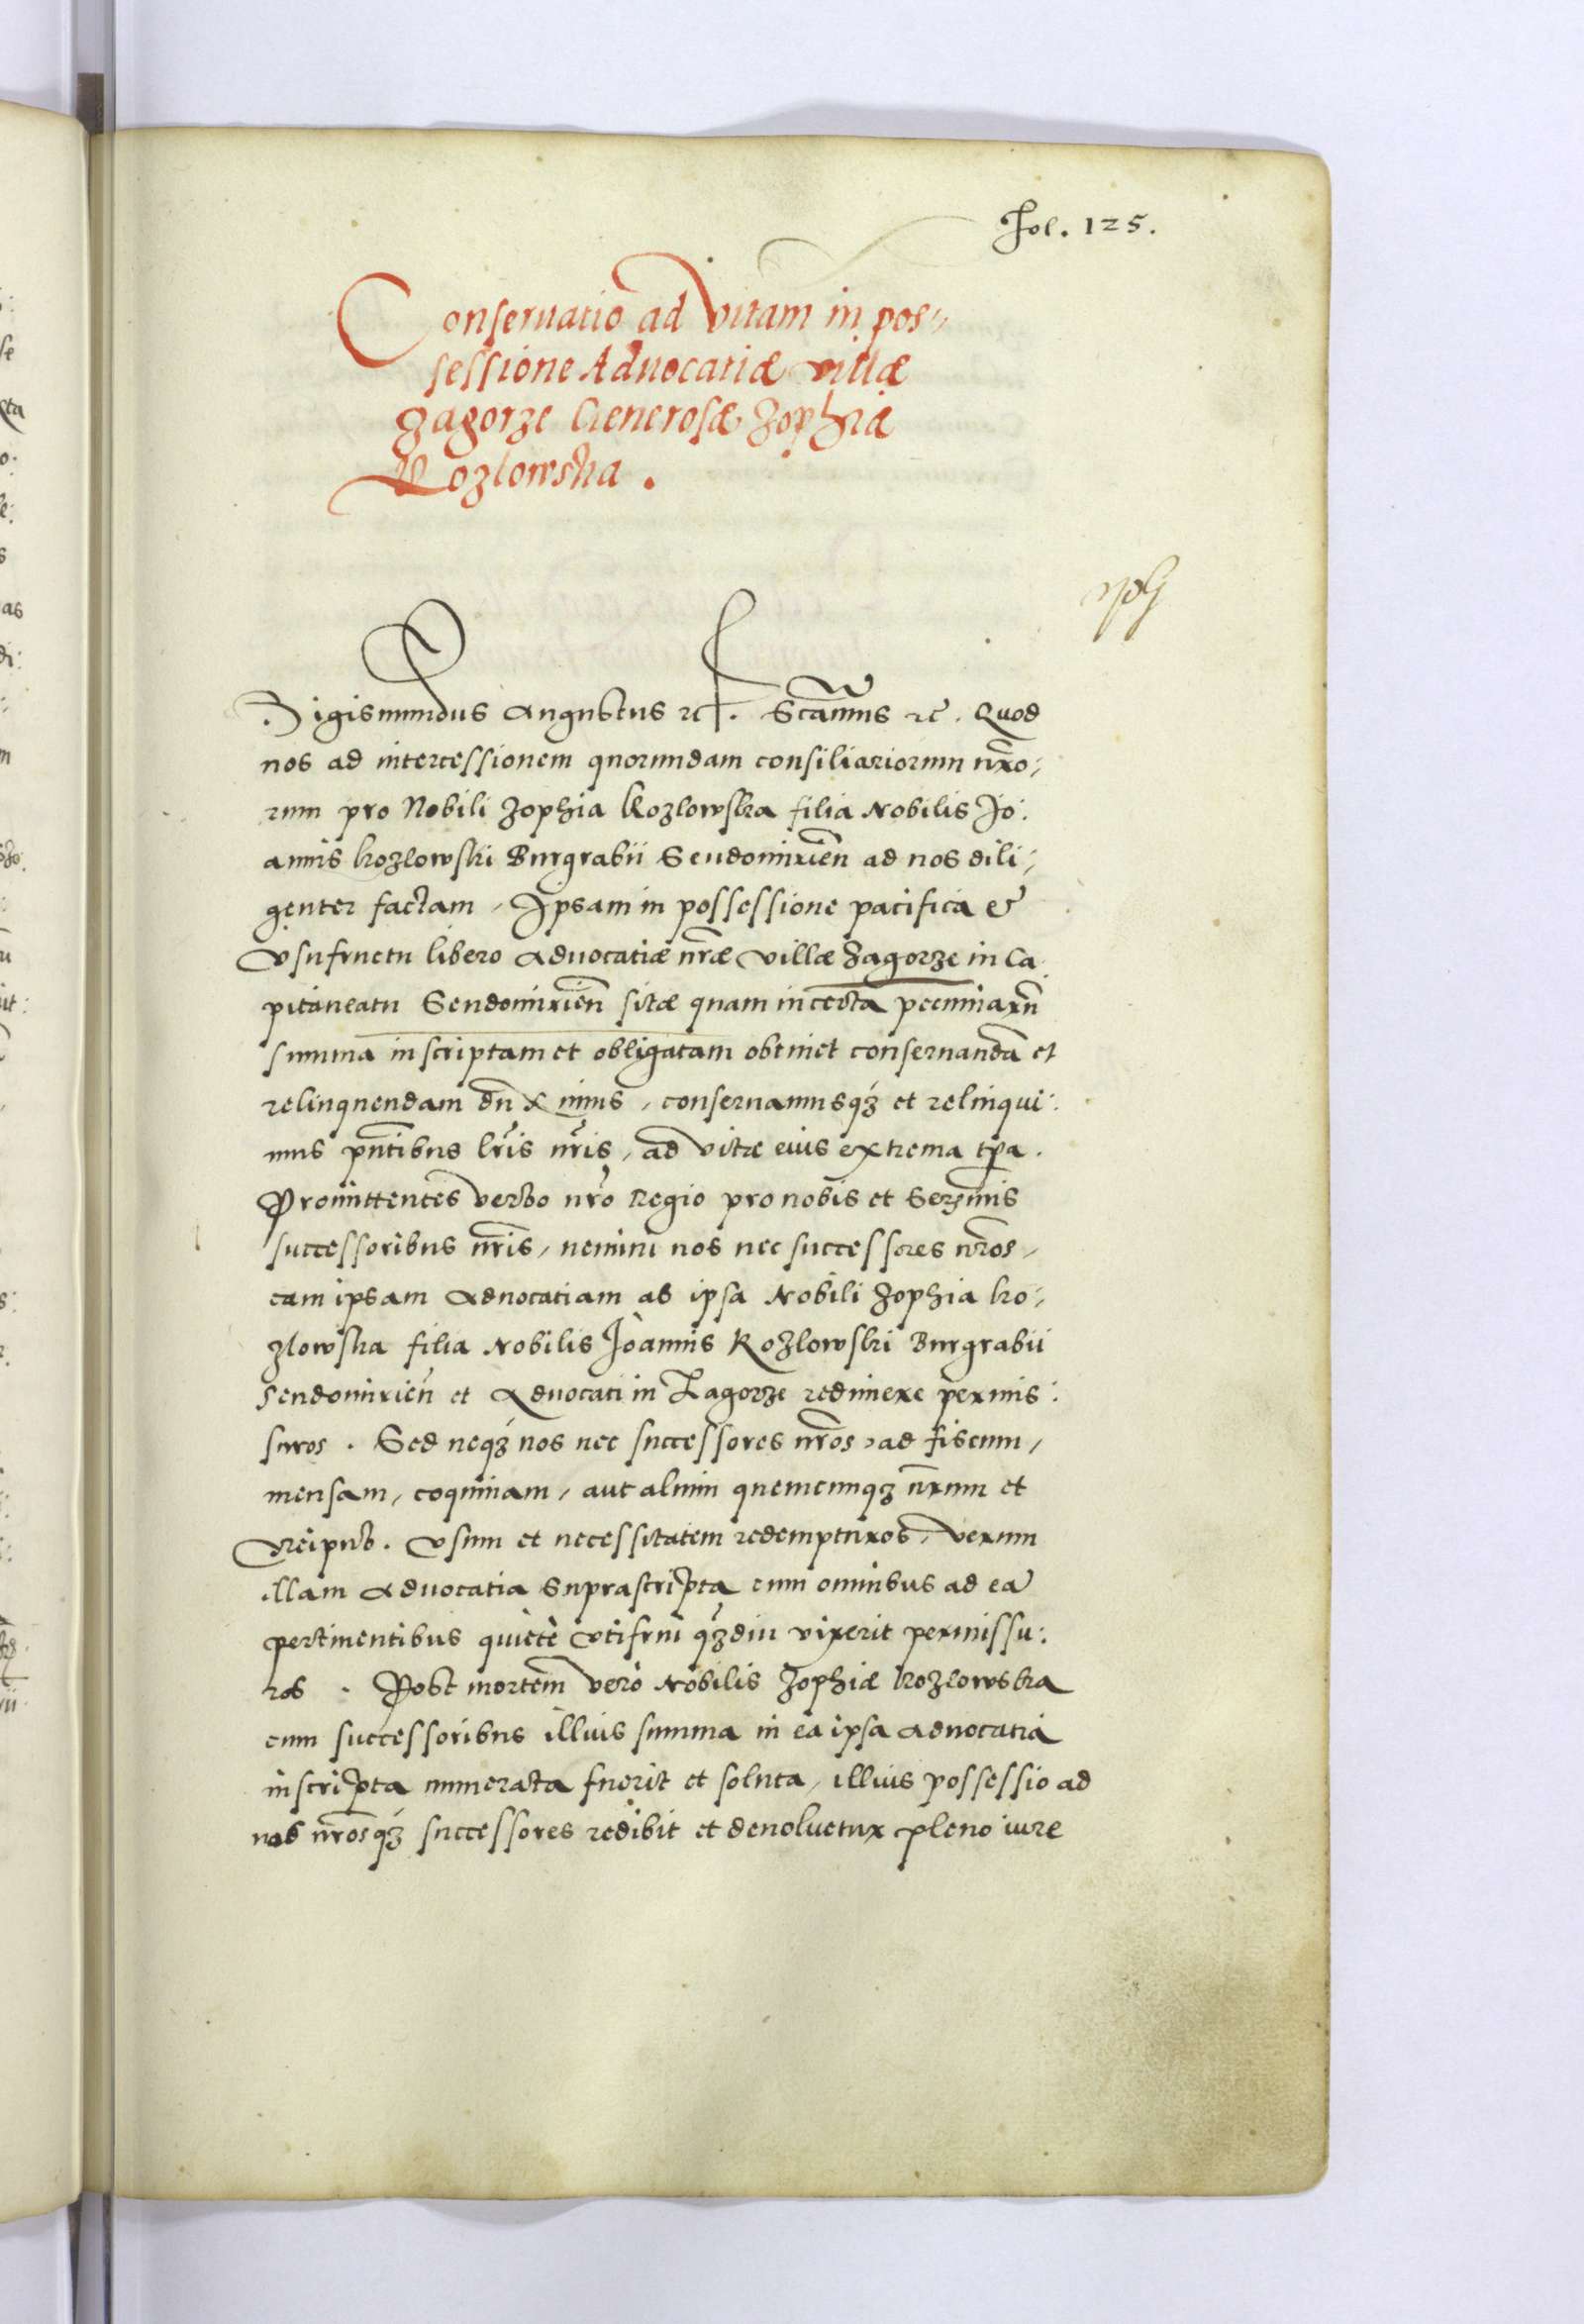 Fol. 125.
Conseruatio ad Vitam in pos„
sessione Aduocatiæ villæ
Zagorze Generosæ Zophiæ
Kozlowska.
Sigismundus Augustus rc. Scamus rc. Quod
nos ad intercessionem quorundam consiliariorum nr̃o,
rum pro Nobili Zophia Kozlowska filia Nobilis Jo:
annis kozlowski Burgrabii Sendomirien̄ ad nos dili,
genter factam, Ipsam in possessione pacifica et
Vsufructu libero Aduocatiæ nr̃æ Villæ Zagorze in Ca
pitaneatu Sendomirien̄ sitæ quam in certa pecuniarū
summa inscriptam et obligatam obtinet conseruandā et
relinquendam dn̄ximus, conseruamusqꝫ et relinqui:
mus pn̄tibus lr̃is nr̃is, ad vitæ eius extrema tp̄a.
Promittentes verbo nr̃o Regio pro nobis et Serꝫmis
successoribus nr̃is, nemini nos nec successores nr̃os,
eam ipsam Aduocatiam ab ipsa Nobili Zophia ko,
zlowska filia Nobilis Joannis Kozlowski Burgrabii
Sendomirien̄ et Aduocati in Zagorze redimere permis:
suros. Sed neqꝫ nos nec successores nr̃os, ad fiscum,
mensam, coquinam, aut alium quemcunqꝫ nr̃um et
Reipub. Vsum et necessitatem redempturos, Verum
illam Aduocatia suprascripta cum omnibus ad ea
pertinentibus quiete Vtifrui qꝫdiu vixerit permissu:
ros. Post mortem vero Nobilis Zophiæ kozlowska
cum successoribus illius summa in ea ipsa Aduocatia
inscripta numerata fuerit et soluta, illius possessio ad
nos nr̃osqꝫ successores redibit et deuoluetur pleno iure